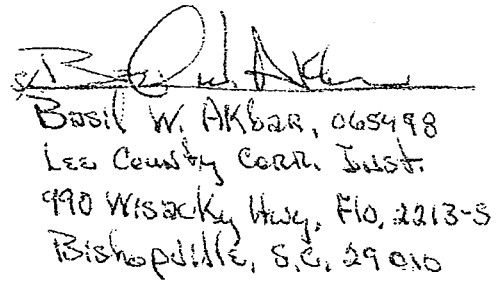 Basil W. Akbar
Basil W. Akbar, 065498
Lee County Corr. Inst.
990 Wisacky Hwy, F10, 2213-S
Bishopville, S.C. 29010